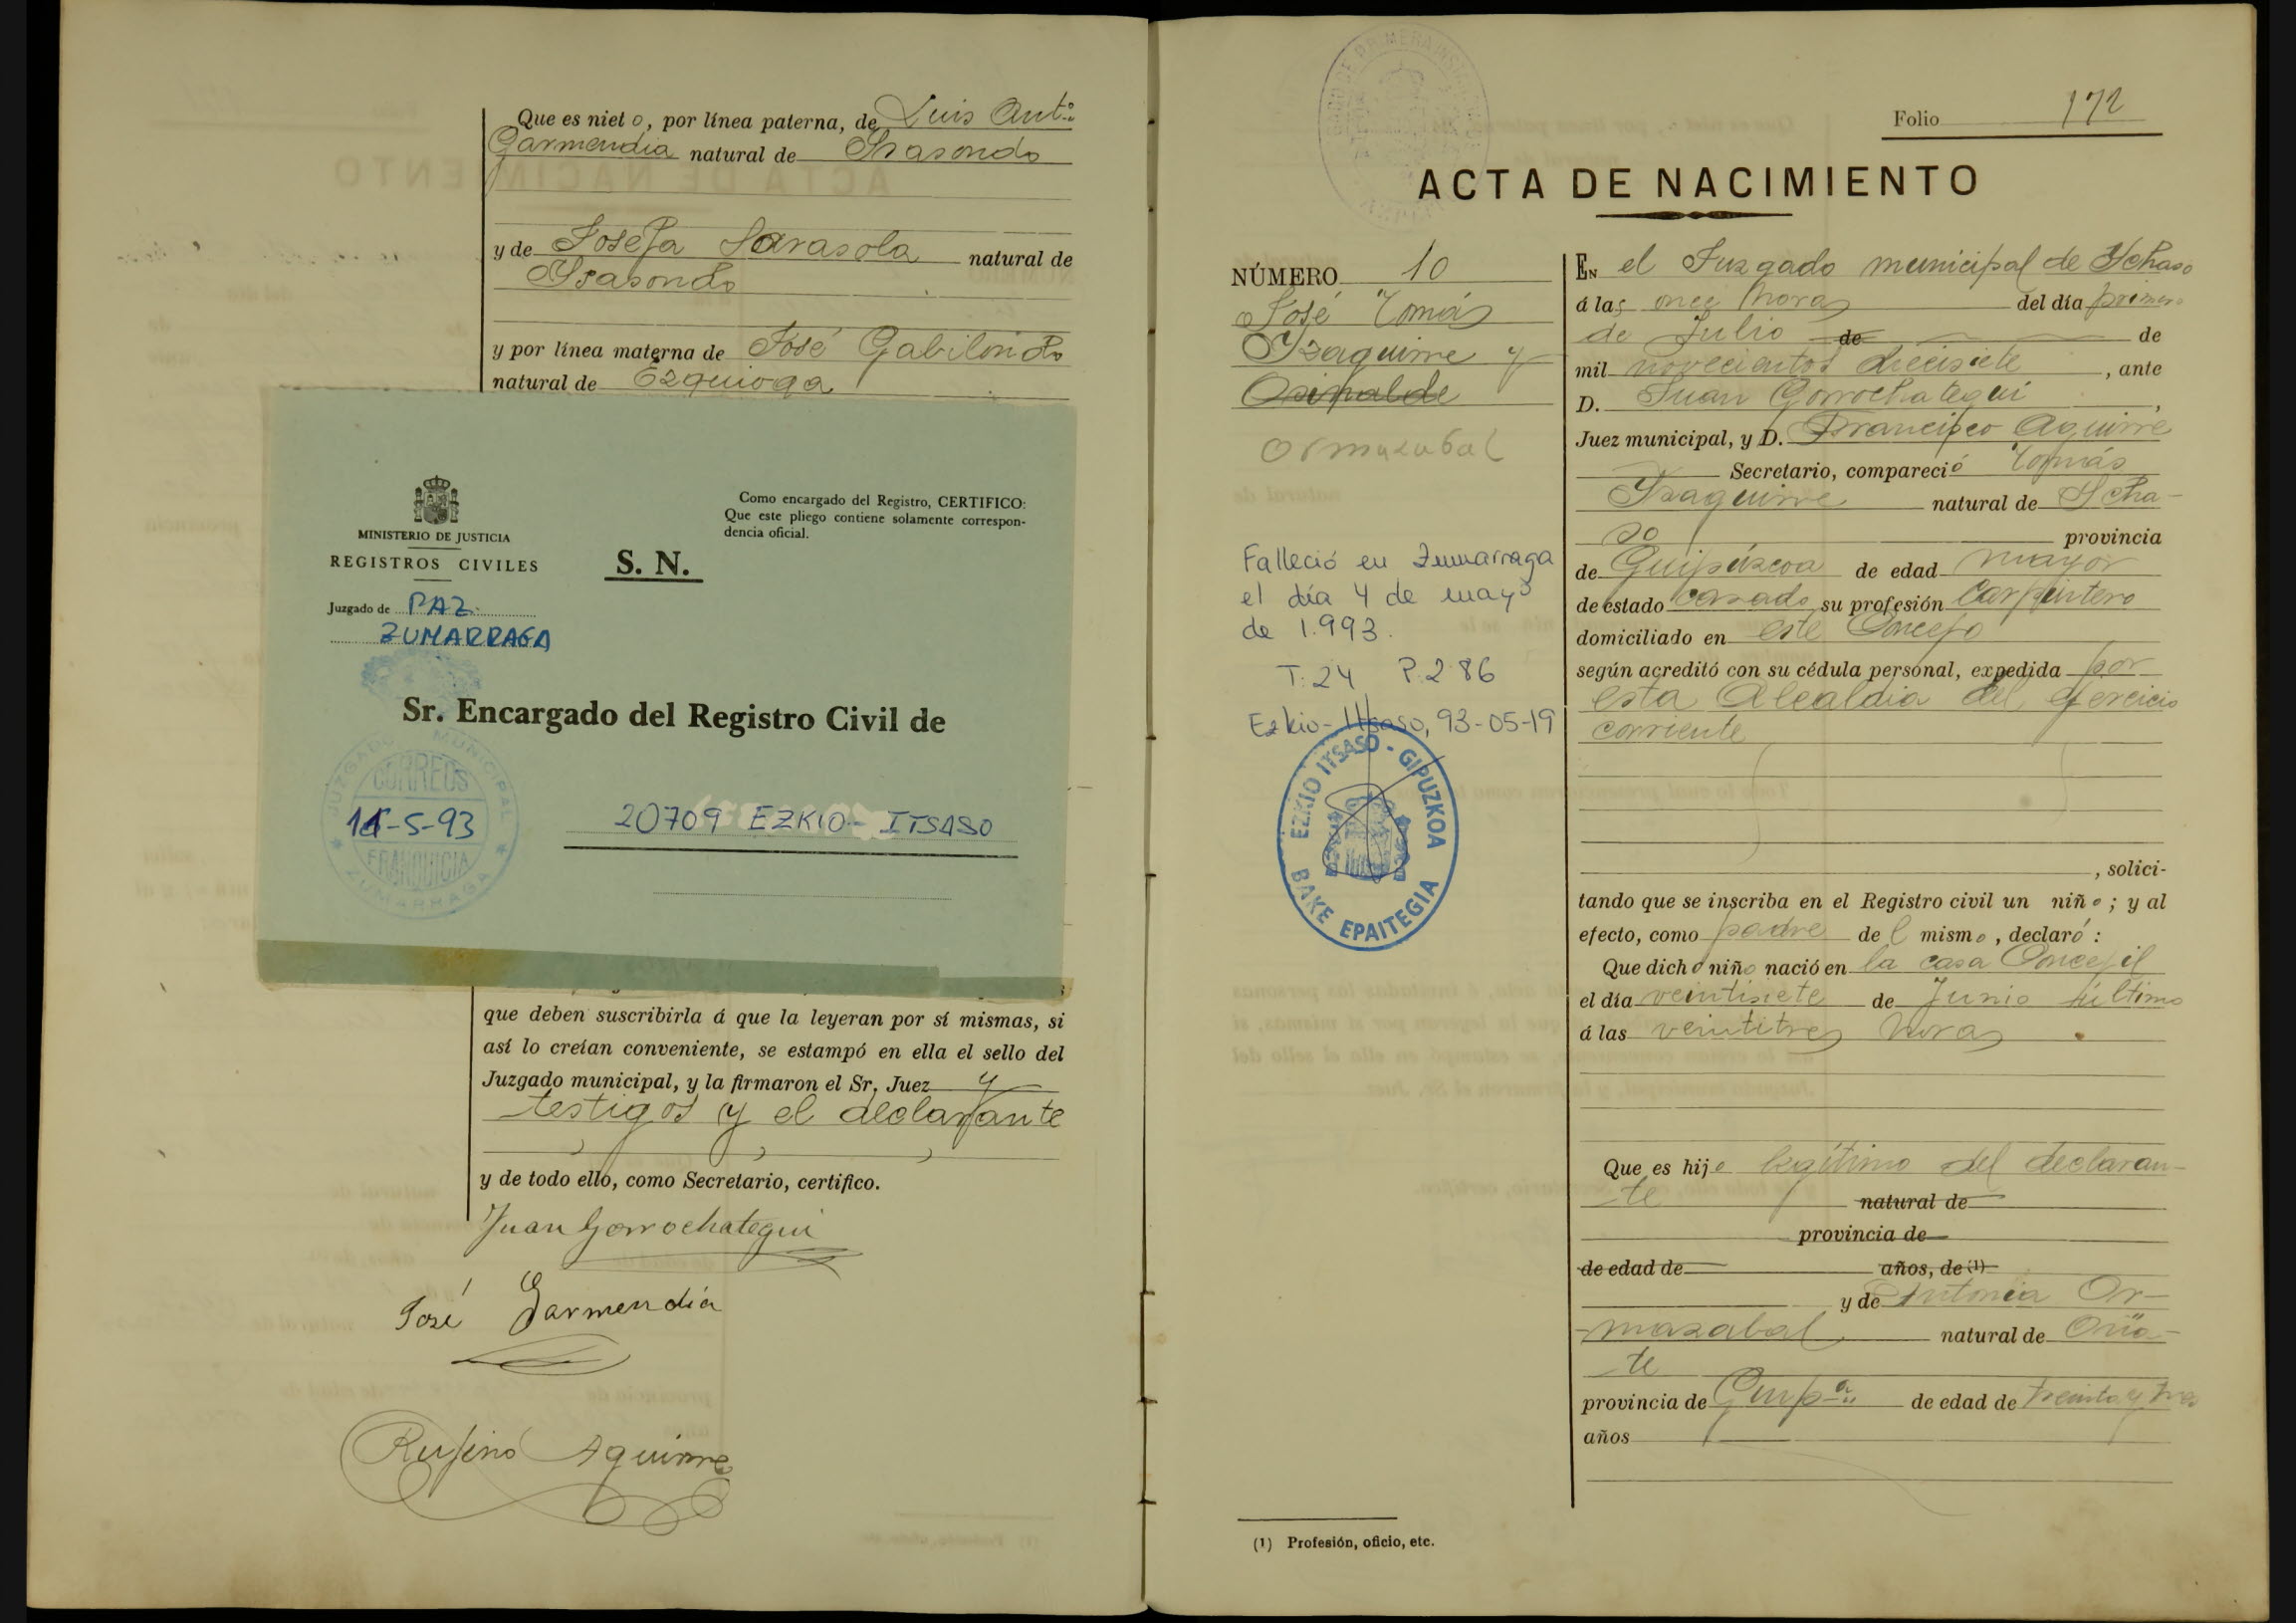 Que es nieto, por línea paterna, de Luis Antº
Garmendia natural de Isasondo
y de Josefa Sarasola natural de
Isasondo
y por línea materna de José Gabilondo
natural de Ezquioga
MINISTERIO DE JUSTICIA
REGISTROS CIVILES
S. N.
Como encargado del Registro, CERTIFICO:
Que este pliego contiene solamente correspon-
dencia oficial.
Juzgado de PAZ.
ZUMARRAGA
Sr. Encargado del Registro Civil de
JUZGADO MUNICIPAL
CORREOS
11-5-93
FRANQUICIA
ZUMARRAGA
20709 EZKIO-ITSASO
que deben suscribirla á que la leyeran por sí mismas, si
así lo creían conveniente, se estampó en ella el sello del
Juzgado municipal, y la firmaron el Sr. Juez y
testigos y el declarante
y de todo ello, como Secretario, certifico.
Juan Gorrochategui
José Garmendia
Rufino Aguirre
Folio 172
ACTA DE NACIMIENTO
NÚMERO 10
José Tomás
Yzaguirre y
Ormazabal
Falleció en Zumarraga
el día 4 de mayo
de 1.993.
T. 24 P. 286
Ezkio-Itsaso, 93-05-19
EZKIO ITSASO - GIPUZKOA
BAKE EPAITEGIA
EN el Juzgado municipal de Ychaso
á las once horas del día primero
de Julio de de
mil novecientos diecisiete, ante
D. Juan Gorrochategui,
Juez municipal, y D. Francisco Aguirre
Secretario, compareció Tomás
Yzaguirre natural de Ycha-
so provincia
de Guipúzcoa de edad mayor
de estado casado su profesión Carpintero
domiciliado en este Concejo
según acreditó con su cédula personal, expedida por
esta Alcaldia del ejercicio
corriente
, solici-
tando que se inscriba en el Registro civil un niño; y al
efecto, como padre del mismo, declaró:
Que dicho niño nació en la casa Concejil
el día veintisiete de Junio último
á las veintitres horas
Que es hijo legítimo del declaran-
te natural de
provincia de
de edad de años, de (1)
y de Antonia Or-
mazabal natural de Oña-
te
provincia de Guipª de edad de treinta y tres
años
(1) Profesión, oficio, etc.